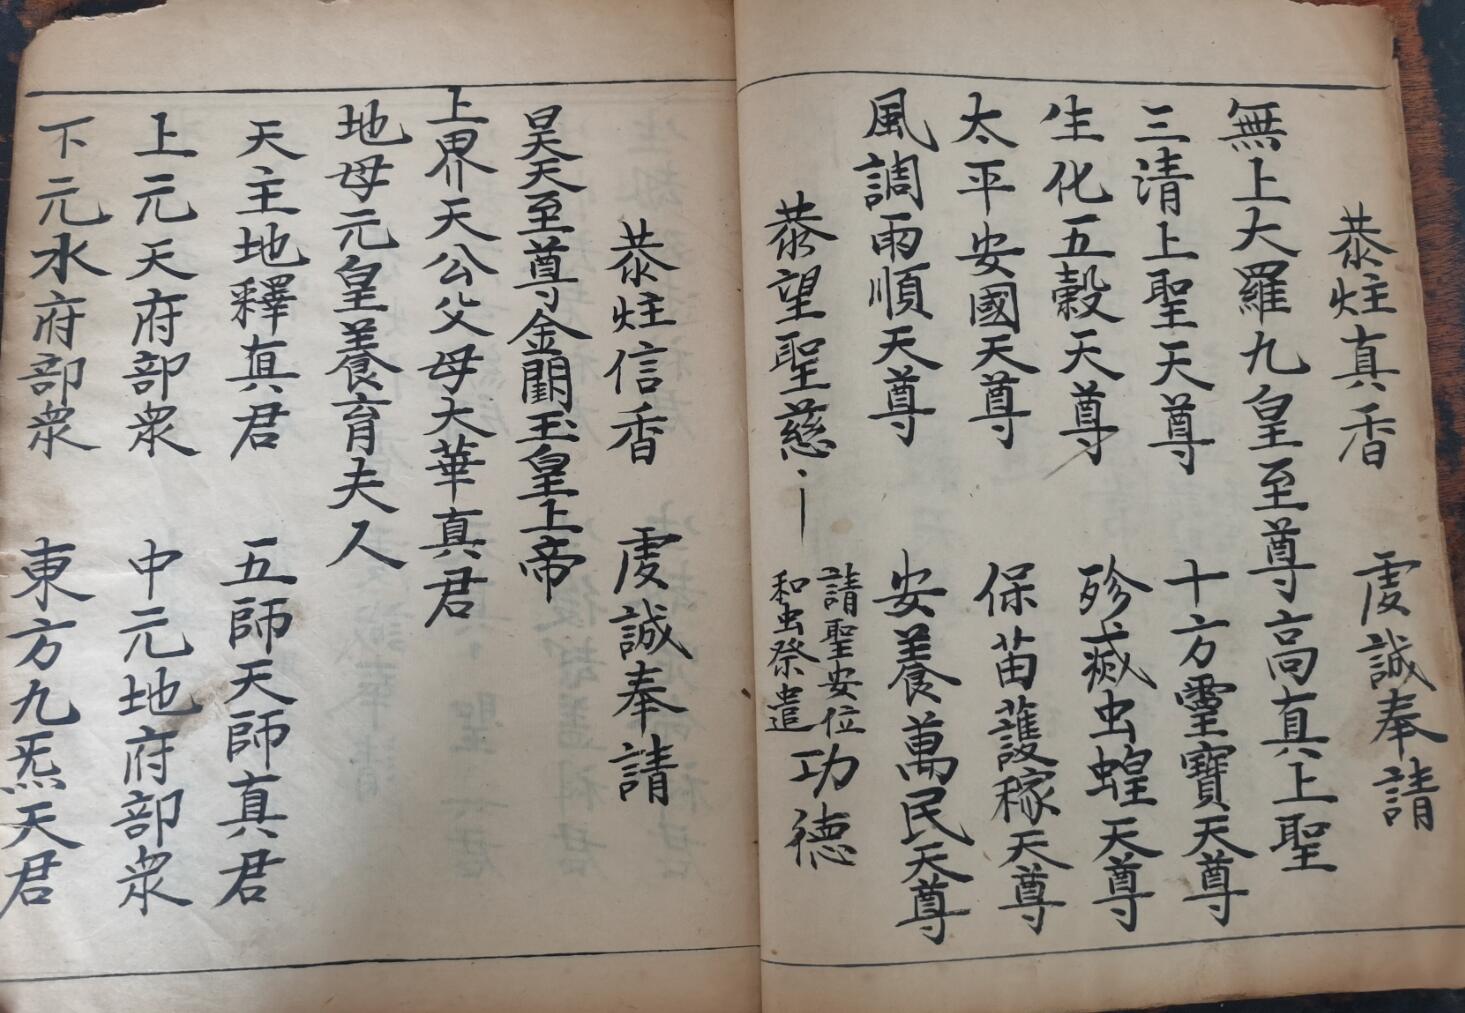 恭炷真香 虔誠奉請
無上大羅九皇至尊高真上聖
三清上聖天尊 十方靈寶天尊
生化五穀天尊 殄滅虫蝗天尊
太平安國天尊 保苗護稼天尊
風調雨順天尊 安養萬民天尊
恭望聖慈 請聖安位 和虫祭遣 功德
恭炷信香 虔誠奉請
昊天至尊金闕玉皇上帝
上界天公父母大華真君
地母元皇養育夫人
天主地釋真君 五師天師真君
上元天府部衆 中元地府部衆
下元水府部衆 東方九炁天君